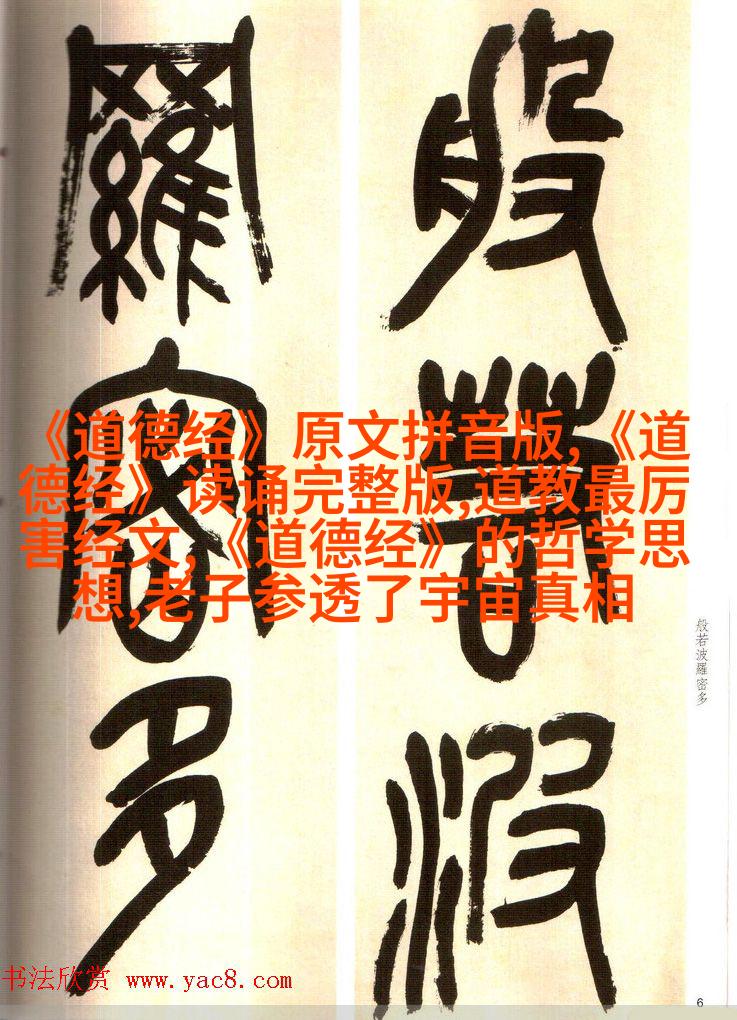 般若波
羅密多
《道德经》原文拼音版,《道
德经》读诵完整版,道教最厉
害经文,《道德经》的哲学思
想,老子参透了宇宙真相
般若波羅密多
书法欣赏 www.yac8.com
6